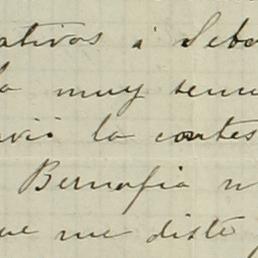 ativos á Seba
la muy senc
vió la contes
Bernafia n
ue me diste y